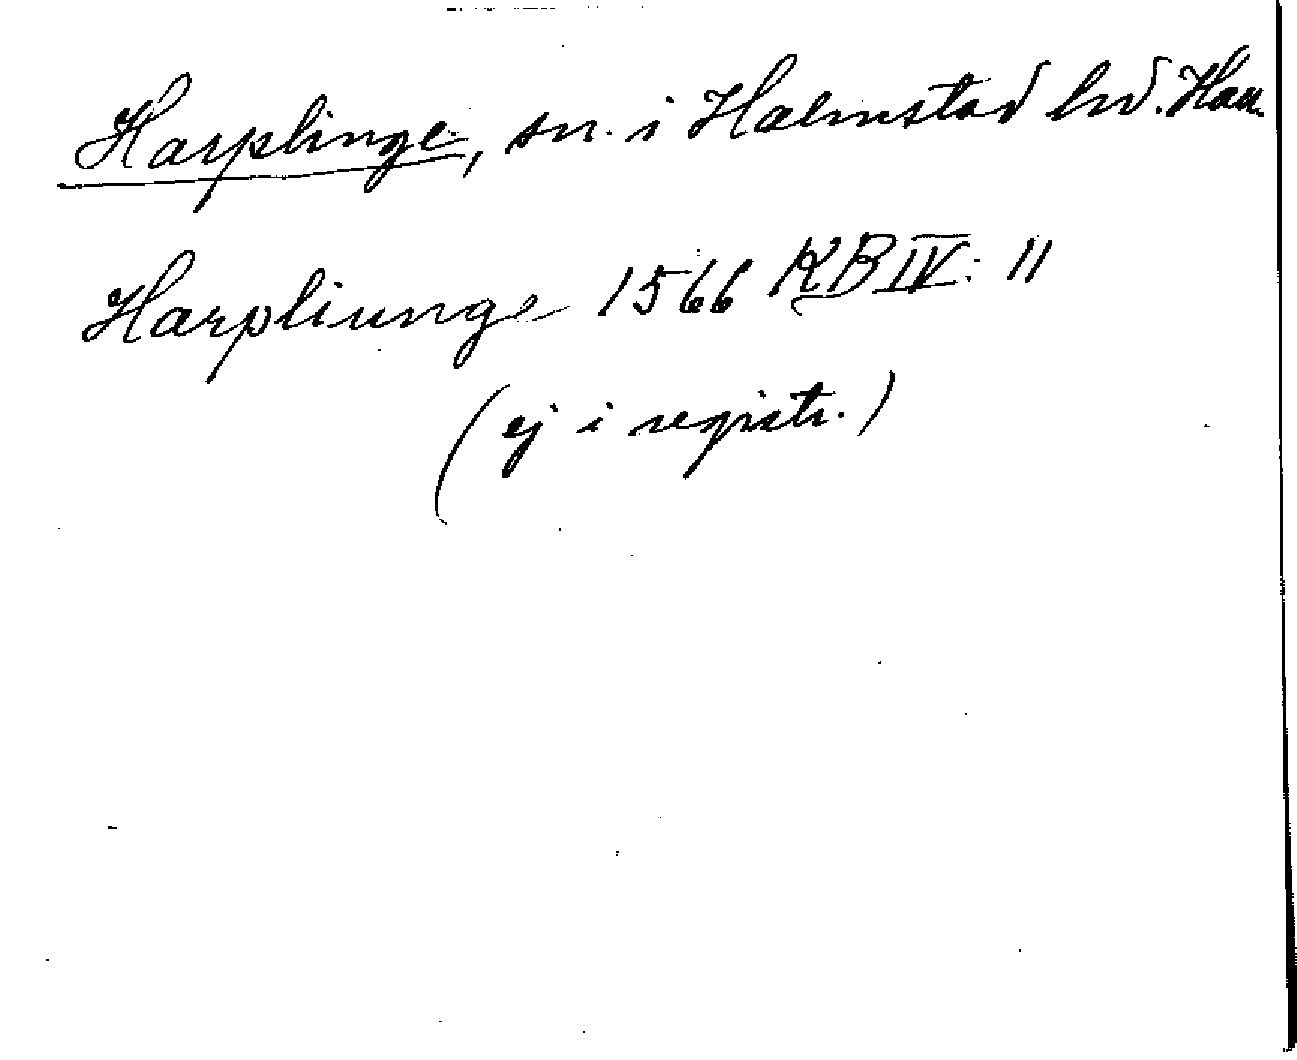 Harplinge, sn. i Halmstad hd. Hall.
Harpliunge 1566 KB IV: 11
(ej i registr.)